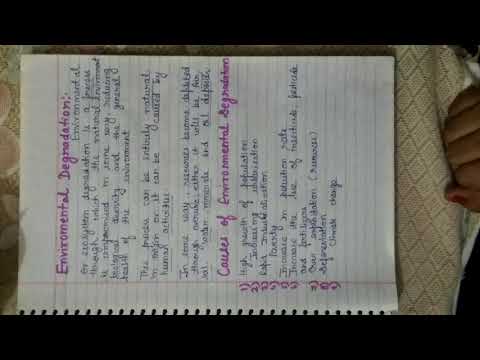 Environmental Degradation:
Environmental
or ecosystem degradation is a process
through which the natural environment
is compromised in some way, reducing
biological diversity and the general
health of the environment
This process can be entirely natural
in origin or it can be caused by
human activities
In some way, resources become depleted
these
soil, minerals and oil deposits
Causes of Environmental Degradation
1) High growth of population
2) Increasing urbanization
3) Rapid Industrialization
4) Poverty
5) Increase in pollution rate
6) Increase the use of insecticide, pesticide
and fertilizers
7) Over exploitation (resources)
8) Deforestation
9) Climate change